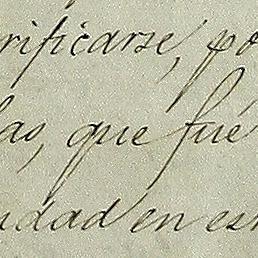 rificarse, po
las, que fué
ndad en est